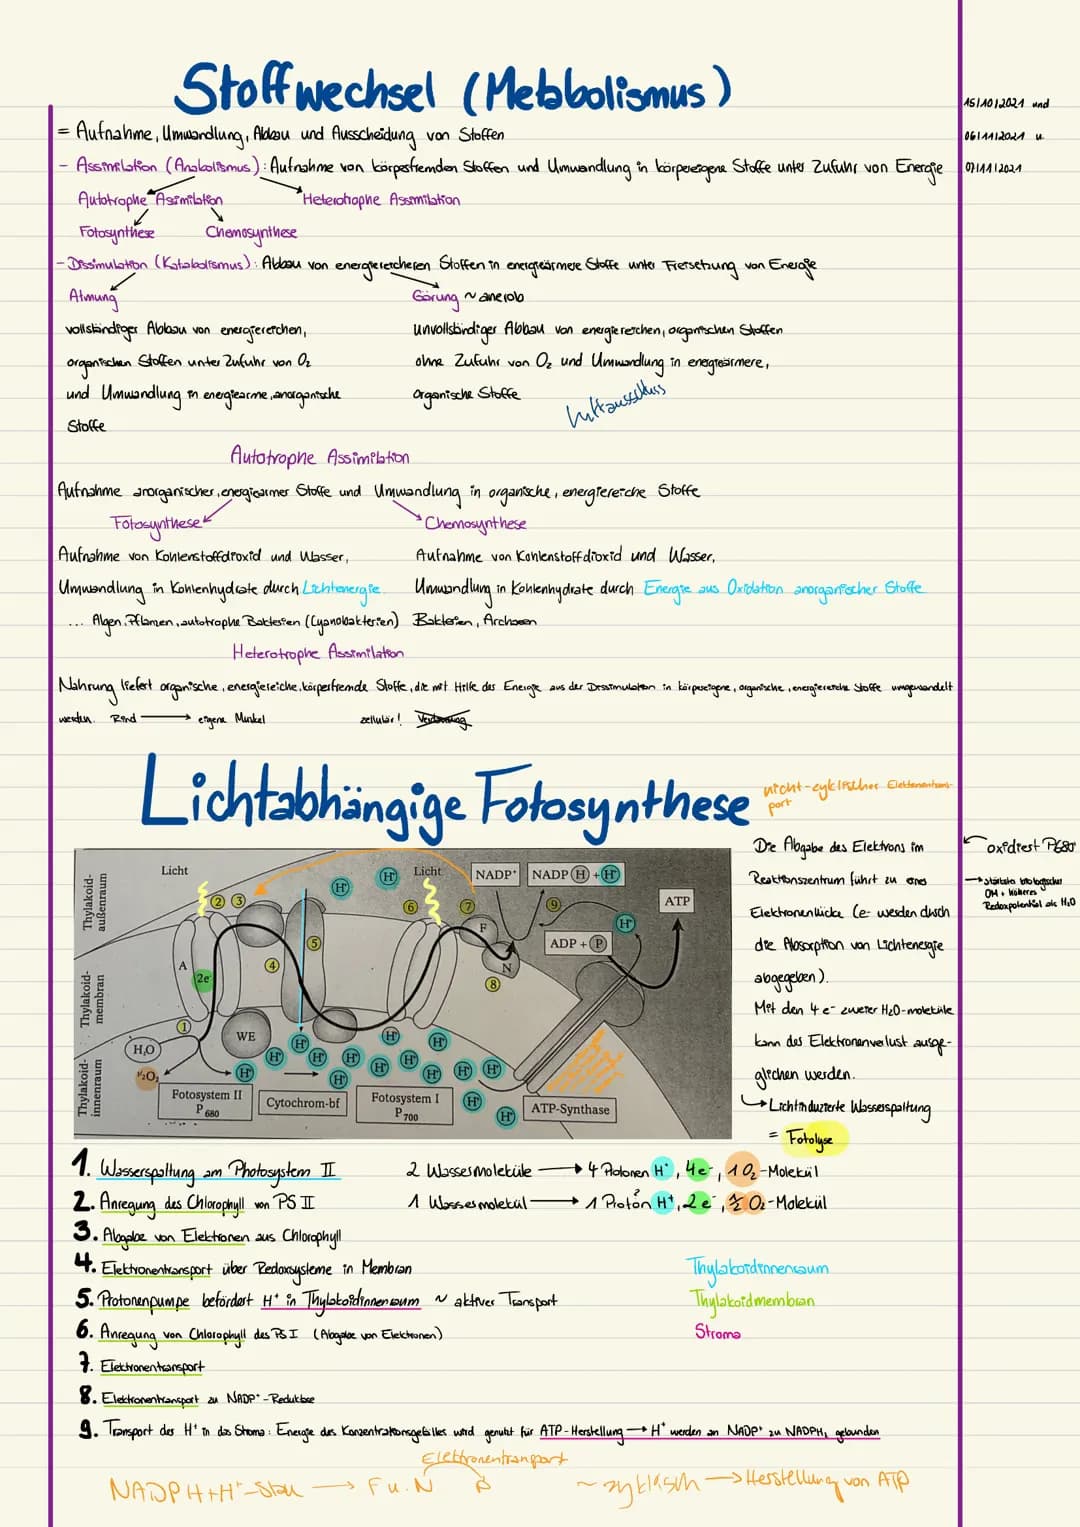 Stoffwechsel (Metabolismus)
15/10/2021 und
06/11/2021 u.
07/11/2021
= Aufnahme, Umwandlung, Abbau und Ausscheidung von Stoffen
- Assimilation (Anabolismus): Aufnahme von körperfremden Stoffen und Umwandlung in körpereigene Stoffe unter Zufuhr von Energie
Autotrophe Assimilation Heterotrophe Assimilation
Fotosynthese Chemosynthese
- Dissimulation (Katabolismus): Abbau von energiereicheren Stoffen in energieärmere Stoffe unter Freisetzung von Energie
Atmung Gärung ~ anerob
vollständiger Abbau von energiereichen, unvollständiger Abbau von energiereichen, organischen Stoffen
organischen Stoffen unter Zufuhr von O₂ ohne Zufuhr von O₂ und Umwandlung in energieärmere,
und Umwandlung in energiearme, anorganische organische Stoffe Luftausschluss
Stoffe
Autotrophe Assimilation
Aufnahme anorganischer, energiearmer Stoffe und Umwandlung in organische, energiereiche Stoffe
Fotosynthese Chemosynthese
Aufnahme von Kohlenstoffdioxid und Wasser, Aufnahme von Kohlenstoffdioxid und Wasser,
Umwandlung in Kohlenhydrate durch Lichtenergie Umwandlung in Kohlenhydrate durch Energie aus Oxidation anorganischer Stoffe
... Algen, Pflanzen, autotrophe Bakterien (Cyanobakterien) Bakterien, Archaeen
Heterotrophe Assimilation
Nahrung liefert organische, energiereiche, körperfremde Stoffe, die mit Hilfe der Energie aus der Dissimulation in körpereigene, organische, energiereiche Stoffe umgewandelt
werden. Rind → eigene Muskel zellulär! Verdauung
Lichtabhängige Fotosynthese
nicht-cyklischer Elektronentrans-
port
Thylakoid-
außenraum
Thylakoid-
membran
Thylakoid-
innenraum
Licht
Licht
NADP⁺
NADP H + H⁺
ATP
ADP + P
2 3
6 7 9
H⁺ H⁺ H⁺
F
5
A
2e⁻
4
N
8
1
WE
H₂O
½O₂
H⁺ H⁺ H⁺ H⁺ H⁺ H⁺ H⁺ H⁺ H⁺ H⁺ H⁺ H⁺ H⁺
Fotosystem II
P 680
Cytochrom-bf
Fotosystem I
P 700
ATP-Synthase
Die Abgabe des Elektrons im
Reaktionszentrum führt zu einer
Elektronenlücke (e⁻ werden durch
die Absorption von Lichtenergie
abgegeben).
Mit den 4 e⁻ zweier H₂O-moleküle
kann der Elektronenverlust ausge-
glichen werden.
→ Lichtinduzierte Wasserspaltung
= Fotolyse
oxidiert P680⁺
→ stärkstes biologisches
OM + höheres
Redoxpotential als H₂O
1. Wasserspaltung am Photosystem II 2 Wassermoleküle → 4 Protonen H⁺, 4e⁻, 1 O₂-Molekül
2. Anregung des Chlorophyll von PS II 1 Wassermolekül → 1 Proton H⁺, 2e⁻, ½ O₂-Molekül
3. Abgabe von Elektronen aus Chlorophyll
4. Elektronentransport über Redoxsysteme in Membran Thylakoidinnenraum
5. Protonenpumpe befördert H⁺ in Thylakoidinnenraum ~ aktiver Transport Thylakoidmembran
6. Anregung von Chlorophyll des PS I (Abgabe von Elektronen) Stroma
7. Elektronentransport
8. Elektronentransport zu NADP⁺-Reduktase
9. Transport der H⁺ in das Stroma: Energie des Konzentrationsgefälles wird genutzt für ATP-Herstellung → H⁺ werden an NADP⁺ zu NADPH₂ gebunden
Elektronentransport
NADPH+H⁺-Stau → F u. N ~ zyklisch → Herstellung von ATP